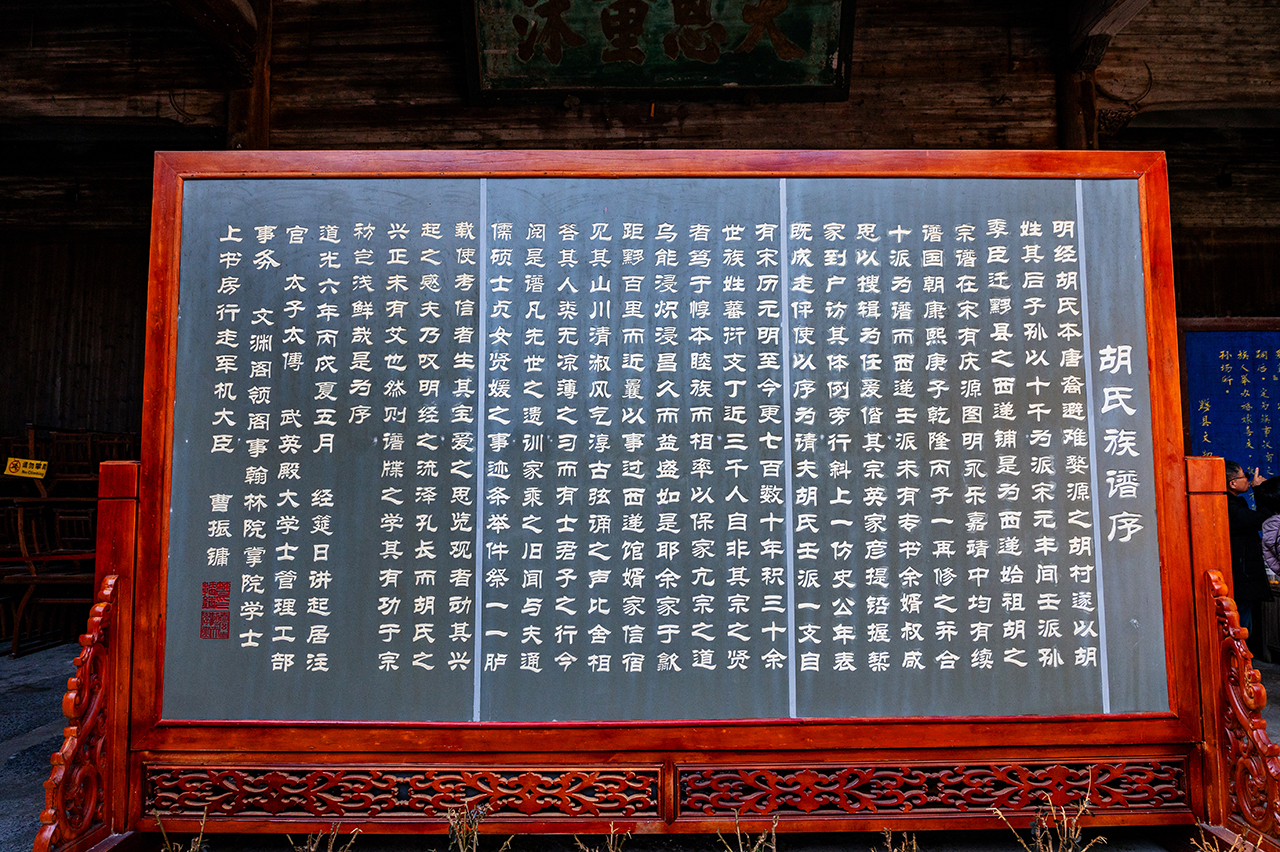 大恩重沐
胡氏族谱序
明经胡氏本唐裔避难婺源之胡村遂以胡
姓其后子孙以十千为派宋元丰间壬派孙
黍臣迁黟县之西递铺是为西递始祖胡之
宗谱在宋有庆源图明永乐嘉靖中均有续
谱国朝康熙庚子乾隆丙子一再修之并合
十派为谱而西递壬派未有专书余婿叔咸
思以搜辑为任爰偕其宗英家彦提铅握椠
家到户访其体例旁行斜上一仿史公年表
既成走伻使以序为请夫胡氏壬派一支自
有宋历元明至今更七百数十年积三十余
世族姓蕃衍支丁近三千人自非其宗之贤
者笃于惇本睦族而相率以保家亢宗之道
乌能浸炽浸昌久而益盛如是耶余家于歙
距黟百里而近曩以事过西递馆婿家信宿
见其山川清淑风气淳古弦诵之声比舍相
答其人类无凉薄之习而有士君子之行今
阅是谱凡先世之遗训家乘之旧闻与夫通
儒硕士贞女贤媛之事迹条举件祭一一胪
载使考信者生其宝爱之思览观者动其兴
起之感夫乃叹明经之流泽孔长而胡氏之
兴正未有艾也然则谱牒之学其有功于宗
祊岂浅鲜哉是为序
道光六年丙戌夏五月 经筵日讲起居注
官 太子太傅 武英殿大学士管理工部
事务 文渊阁领阁事翰林院掌院学士
上书房行走军机大臣 曹振镛